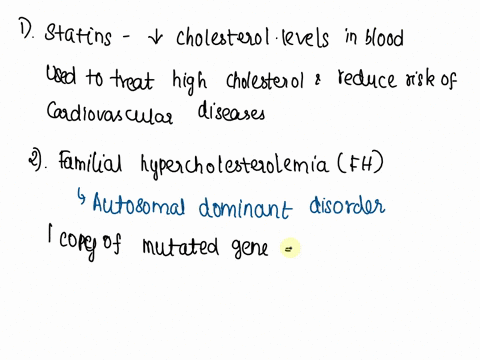 1). Statins - ↓ cholesterol levels in blood
Used to treat high cholesterol & reduce risk of
Cardiovascular diseases
2). Familial hypercholesterolemia (FH)
↳ Autosomal dominant disorder
1 copy of mutated gene =